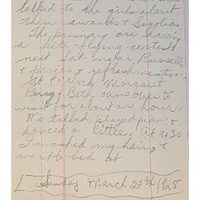 talked to the girls about
their awards &
The primary are having
a kite-flying contest
next Sat. near Russell's
& prizes & refreshments.
At 7 o'clock Margaret
& Betty came over to
visit for about an hour.
We talked, played piano &
danced a little. At 9:30
I washed my hair &
went to bed at
Sunday March 25th 1928